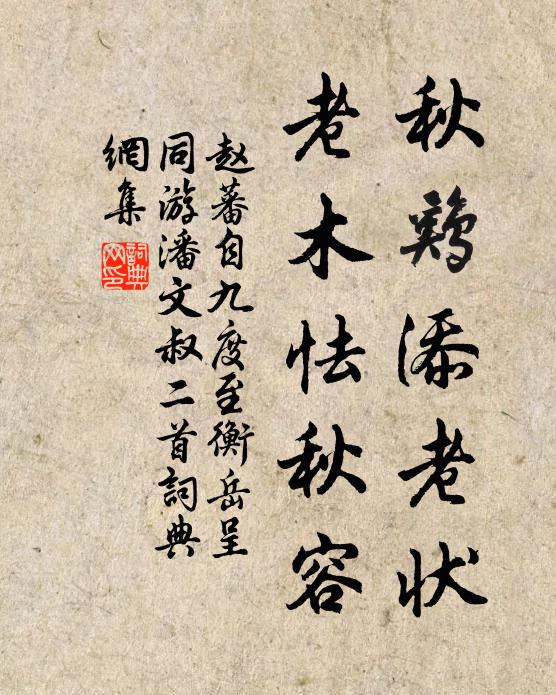 秋鶏添老状
老木怯秋容
赵蕃自九度至衡岳呈
同游潘文叔二首詞典
網集
詞典
网印